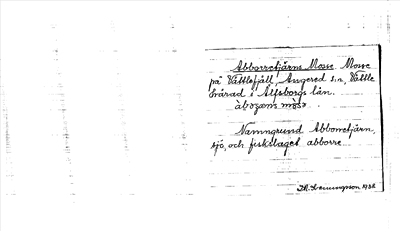 Abborretjärns Mosse. Mosse
på Vättlefjäll, Angered s:n, Vättle
härad i Älfsborgs län.
Namngrund Abborretjärn,
sjö, och fisklaget abborre.
1932